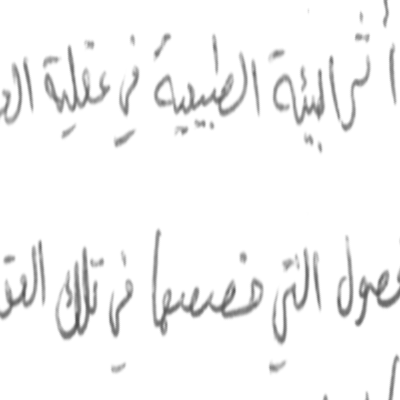 أثر البيئة الطبيعية في عقلية
التي خصصها في تلك